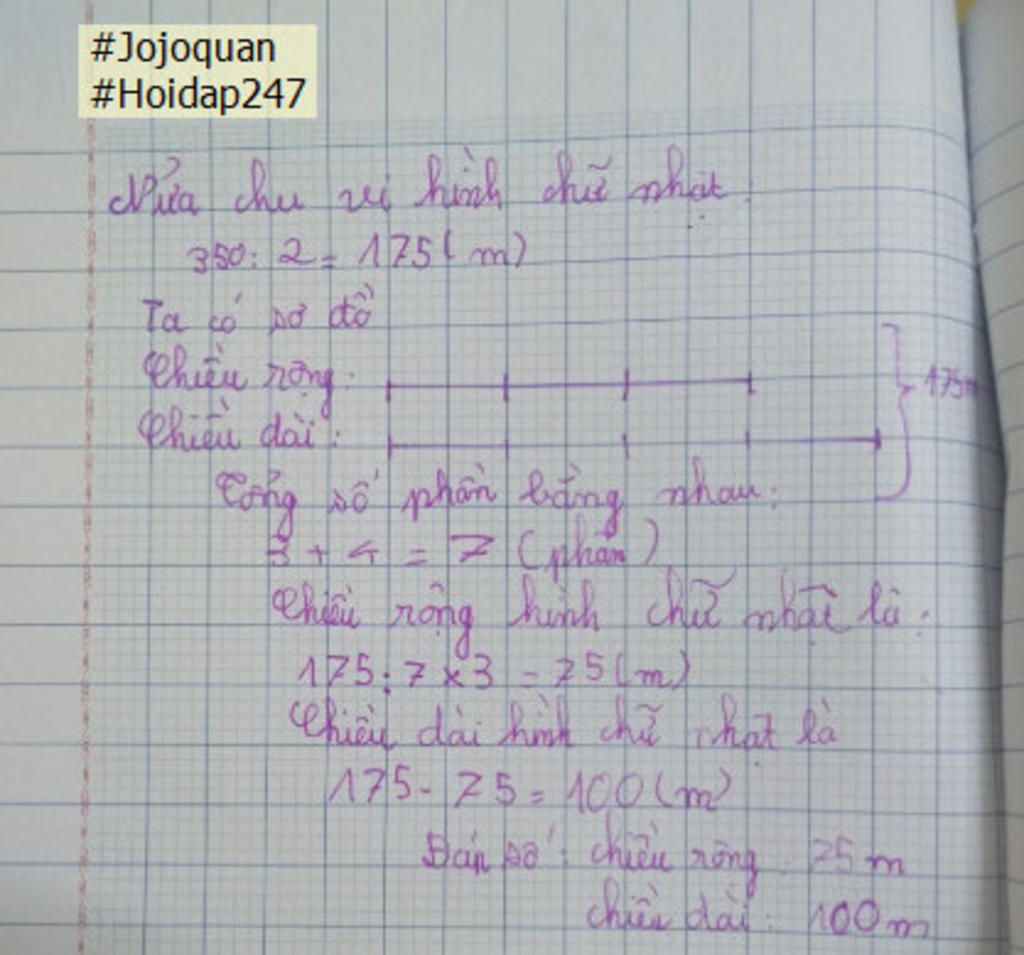 #Jojoquan
#Hoidap247
Nửa chu vi hình chữ nhật:
350 : 2 = 175 ( m )
Ta có sơ đồ
Chiều rộng :
Chiều dài :
175m
Tổng số phần bằng nhau :
3 + 4 = 7 ( phần )
Chiều rộng hình chữ nhật là :
175 : 7 x 3 = 75 ( m )
Chiều dài hình chữ nhật là
175 - 75 = 100 ( m )
Đáp số : chiều rộng 75 m
chiều dài : 100 m